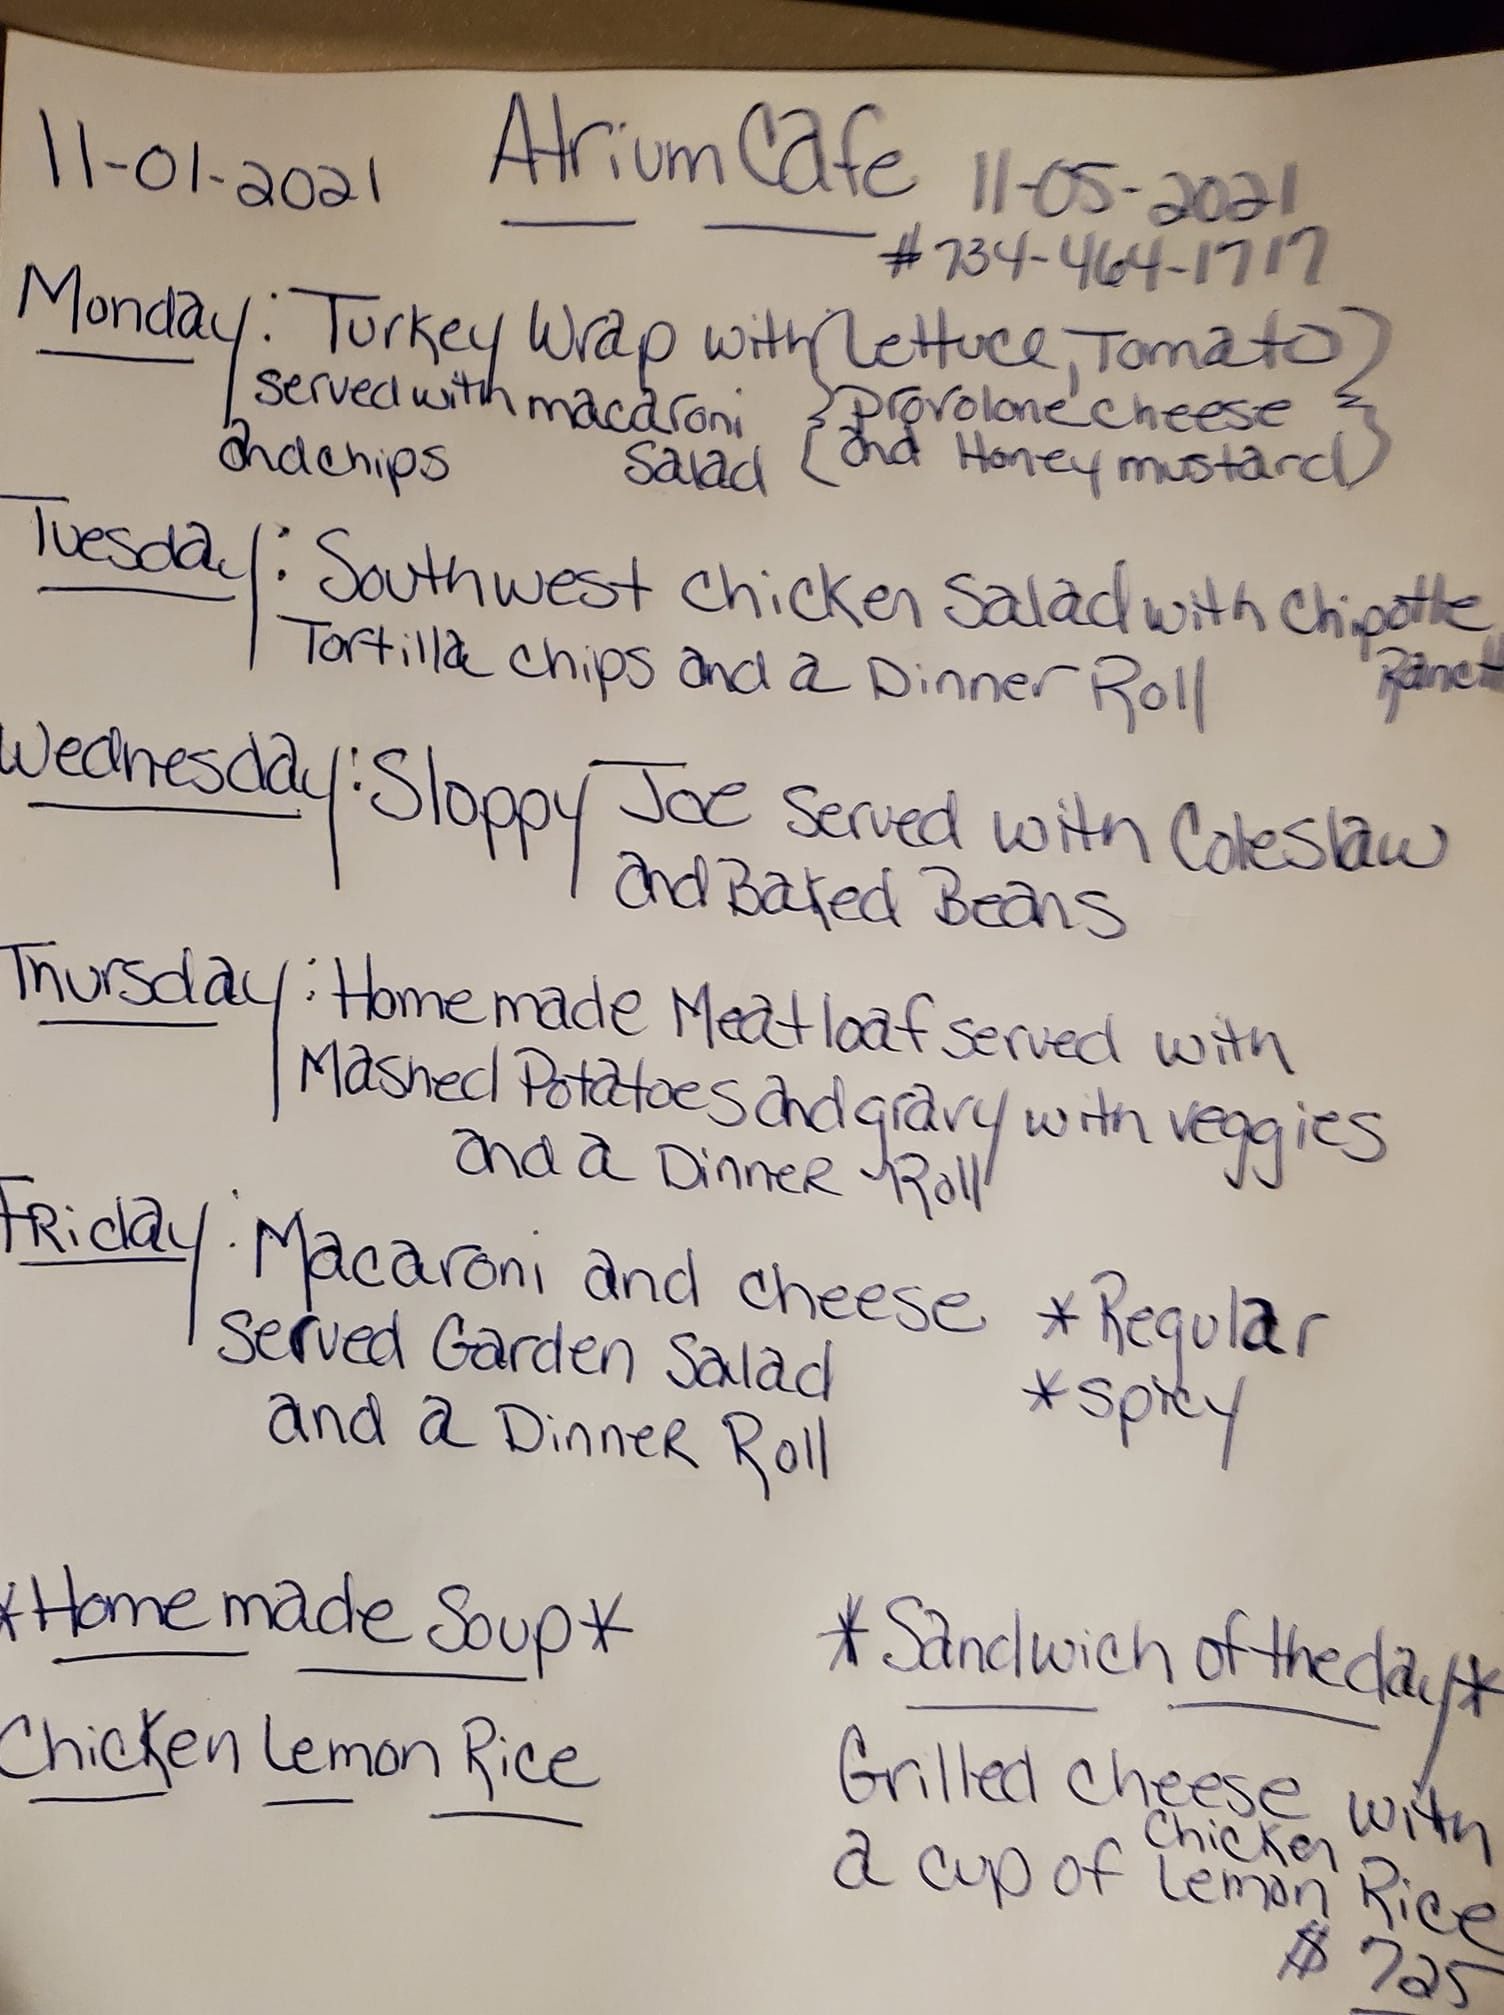 11-01-2021 Atrium Cafe 11-05-2021
#734-464-1717
Monday: Turkey Wrap with (Lettuce, Tomato)
served with macaroni {provolone cheese}
and chips Salad (and Honey mustard)
Tuesday: Southwest chicken Salad with Chipotle
Tortilla chips and a Dinner Roll Ranch
Wednesday: Sloppy Joe Served with Coleslaw
and Baked Beans
Thursday: Homemade Meatloaf served with
Mashed Potatoes and gravy with veggies
and a Dinner Roll
Friday: Macaroni and cheese *Regular
Served Garden Salad *Spicy
and a Dinner Roll
*Homemade Soup* *Sandwich of the day*
Chicken Lemon Rice Grilled cheese with
a cup of Chicken Lemon Rice
$ 725